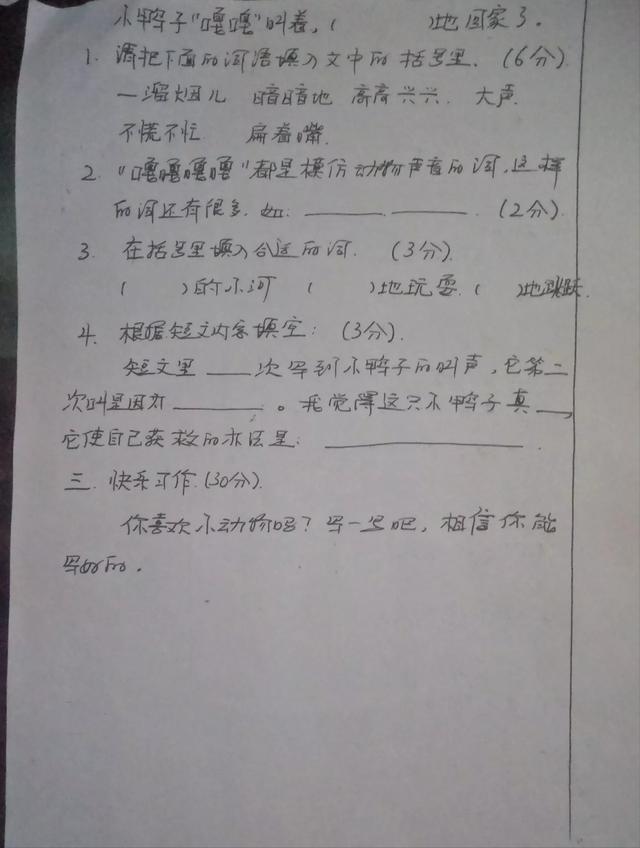 小鸭子“嘎嘎”叫着,(　　　)地回家了。
1. 请把下面的词语填入文中的括号里.(6分)
一溜烟儿 暗暗地 高高兴兴. 大声.
不慌不忙 扁着嘴.
2. “嘎嘎嘎嘎”都是模仿动物声音的词,这样
的词还有很多.如:______ ______.(2分).
3. 在括号里填入合适的词.(3分).
(　　)的小河 (　　)地玩耍.(　　)地跳跃.
4. 根据短文内容填空:(3分).
短文里___次写到小鸭子的叫声,它第二
次叫是因为________。我觉得这只小鸭子真___,
它使自己获救的办法是:________________.
三. 快乐习作.(30分).
你喜欢小动物吗?写一写吧,相信你能
写好的.